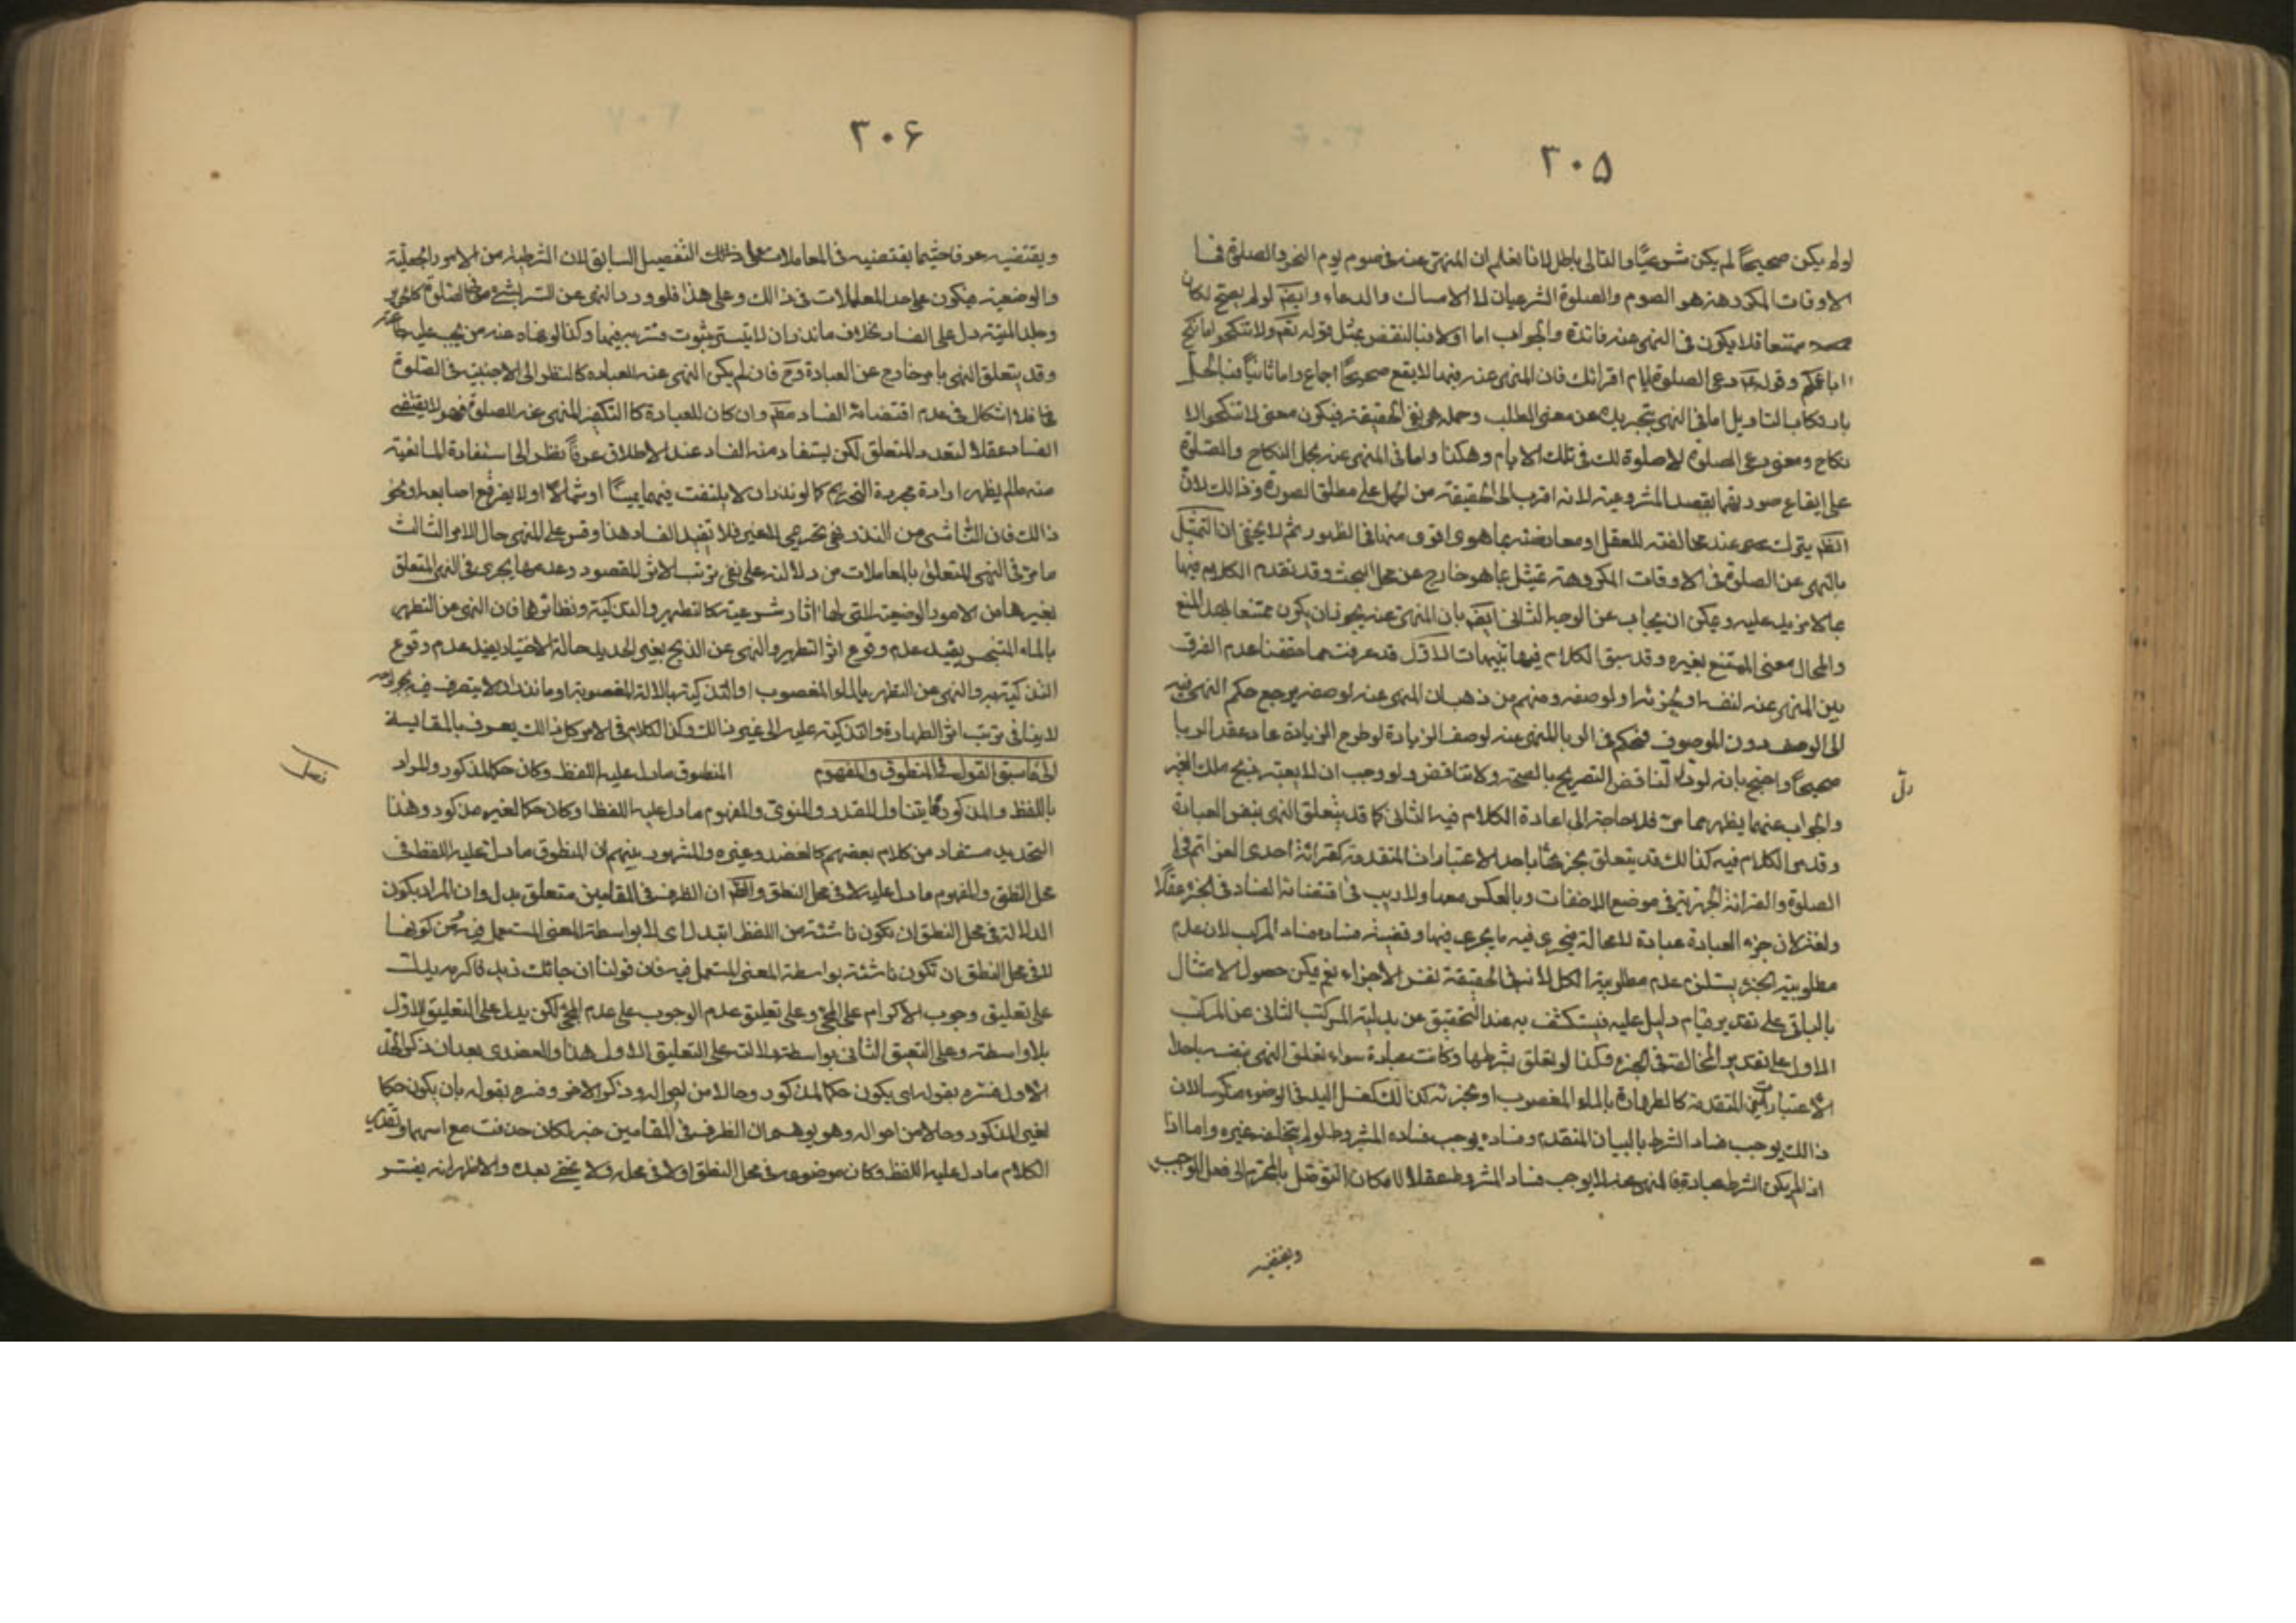 ٣٠۵
لو لم يكن صحيحًا لم يكن شرعيًا والتالى باطل لانا نعلم ان المنهى عنه فى صوم يوم النحر والصلوة فى
الاوقات المكروهة هو الصوم والصلوة الشرعيان لا الامساك والدعاء وايضا لو لم يصح لكان
ممتنعا فلا يكون فى النهى عنه فائدة والجواب اما اولا فبالنقض بمثل قوله تعم ولا تنكحوا ما نكح
اباؤكم وقوله دعى الصلوة ايام اقرائك فان المنهى عنه فيهما لا يقع صحيحًا اجماعا واما ثانيًا فبالحل
بارتكاب التاويل اما فى النهى بتجريده عن معنى الطلب وحمله على نفى الحقيقة فيكون معنى لا تنكحوا لا
نكاح ومعنى دعى الصلوة لا صلوة لك فى تلك الايام وهكذا واما فى المنهى عنه بحمل النكاح والصلوة
على ايقاع صورتهما بقصد المشروعية لانه اقرب الى الحقيقة من الحمل على مطلق الصورة وذالك لان
الظم يترك عند مخالفته للعقل او معارضته بما هو اقوى منه فى الظهور ثم لا يخفى ان التمثيل
بالنهى عن الصلوة فى الاوقات المكروهة تمثيل بما هو خارج عن محل البحث وقد تقدم الكلام فيها
بما لا مزيد عليه ويمكن ان يجاب عن الوجه الثانى ايضا بان المنهى عنه يجوز ان يكون ممتنعا بهذا المنع
والمحال معنى الممتنع بغيره وقد سبق الكلام فيه تنبيهات الاول قد عرفت مما حققنا عدم الفرق
بين المنهى عنه لنفسه او لجزئه او لوصفه ومنهم من ذهب ان المنهى عنه لوصفه يرجع حكم النهى فيه
الى الوصف دون الموصوف فحكم فى الربا المنهى عنه لوصف الزيادة لو طرح الزيادة عاد عقد الربا
صحيحًا واحتج بانه لو دل لناقض التصريح بالصحة ولا تناقض ولو وجب ان لا يعتبر ذبح ملك الغير
دلّ
والجواب عنهما يظهر مما مر فلا حاجة الى اعادة الكلام فيه الثانى كما قد يتعلق النهى بنفس العبادة
وقد مر الكلام فيه كذالك قد يتعلق بجزئها باحد الاعتبارات المتقدمة كقرائة احدى العزائم فى
الصلوة والقرائة الجهرية فى موضع الاخفات وبالعكس معها ولا ريب فى اقتضائه الفساد فى الجزء عقلًا
ولغة لان جزء العبادة عبادة لا محالة فيجرى فيه ما يجرى فيها وقضية فساده فساد المركب لان عدم
مطلوبية الجزء يستلزم عدم مطلوبية الكل لانه فى الحقيقة نفس الاجزاء نعم يمكن حصول الامتثال
بالباقى على تقدير قيام دليل عليه فيستكشف به عند التحقيق عن بدلية المركب الثانى عن المركب
الاول على تقدير المخالفة فى الجزء وكذا لو تعلق بشرطها وكانت عبادة سواء تعلق النهى بنفسه باحد
الاعتبارات المتقدمة كالطهارة بالماء المغصوب او بجزئه كذالك كغسل اليد فى الوضوء منكوسا لان
ذالك يوجب فساد الشرط بالبيان المتقدم وفساده يوجب فساد المشروط لو لم يتخلفه غيره واما اذا
اذا لم يكن الشرط عبادة فالنهى عنه لا يوجب فساد المشروط عقلا لامكان التوصل بالمحرم الى فعل الواجب
ويقتضيه
٣٠۶
ويقتضيه عرفا حيثما يقتضيه فى المعاملات على ذالك التفصيل السابق لان الشرطية من الامور الجعلية
والوضعية فيكون على حد المعاملات فى ذالك وعلى هذا فلو ورد النهى عن التستر بشئ فى الصلوة كالحرير
وجلد الميتة دل على الفساد بخلاف ما نذر ان لا يتستر بثوب فتستر به فيها وكذا لو نهاه عنه من يجب عليه طاعته
وقد يتعلق النهى بامر خارج عن العبادة وح فان لم يكن النهى عنه للعباده كالنظر الى الاجنبية فى الصلوة
فلا اشكال فى عدم اقتضائه الفساد مطم وان كان للعبادة كالتكفير المنهى عنه للصلوة فهو لا يقتضى
الفساد عقلا لتعدد المتعلق لكن يستفاد منه الفساد عند الاطلاق عرفًا نظرا الى استفادة المانعية
منه ما لم يظهر ارادة مجردة التحريم كما لو نذر ان لا يلتفت فيهما يمينًا او شمالًا او لا يفرقع اصابعه ونحو
ذالك فان الناشئ من النذر فى تحريمى الغير فلا تفيد الفساد هذا وقس على المنهى حال الامر الثالث
ما مر فى النهى المتعلق بالمعاملات من دلالته على نفى ترتب الاثر المقصود وعدمها يجرى فى النهى المتعلق
بغيرها من الامور الوضعية التى لها اثار شرعية كالتطهير والتذكية ونظائرها فان النهى عن التطهر
بالماء المتنجس يفيد عدم وقوع اثر التطهر والنهى عن الذبح بغير الحديد حالة الاختيار يفيد عدم وقوع
التذكية به والنهى عن التطهر بالماء المغصوب او التذكية بالالة المغصوبة او ما نذر ان لا يتصرف فيه
لا ينافى ترتب اثر الطهارة والتذكية عليه الى غير ذالك وكذا الكلام فى الامر كل ذالك يعرف بالمقايسة
الى ما سبق القول فى المنطوق والمفهوم المنطوق ما دل عليه اللفظ وكان حكما لمذكور والمراد
فصل
باللفظ والمذكور ما يتناول المقدر والمنوى والمفهوم ما دل عليه اللفظ وكان حكما لغير مذكور وهذا
التحديد مستفاد من كلام بعضهم كالعضدى وغيره والمشهور بينهم ان المنطوق ما دل عليه اللفظ فى
محل النطق والمفهوم ما دل عليه لا فى محل النطق والظم ان الظرف فى المقامين متعلق بدل وان المراد بكون
الدلالة فى محل النطق ان تكون ناشئة من اللفظ ابتداء اى لا بواسطة المعنى المستعمل فيه ومن كونها
لا فى محل النطق ان تكون ناشئة بواسطة المعنى المستعمل فيه فان قولنا ان جائك زيد فاكرمه يدل
على تعليق وجوب الاكرام على المجئ وعلى تعليق عدم الوجوب على عدم المجئ لكن يدل على التعليق الاول
بلا واسطة وعلى التعيق الثانى بواسطة دلالته على التعليق الاول هذا والعضدى بعد ان ذكر الحد
الاول فسره بقوله اى يكون حكما لمذكور وحالا من احواله وذكر الاخر وفسره بقوله بان يكون حكما
لغير المذكور وحالا من احواله وهو يوهم ان الظرف فى المقامين خبر لكان حذفت مع اسمها وتقدير
الكلام ما دل عليه اللفظ وكان موضوعه فى محل النطق او لا فى محله ولا يخفى بعده والاظهر انه يفسر